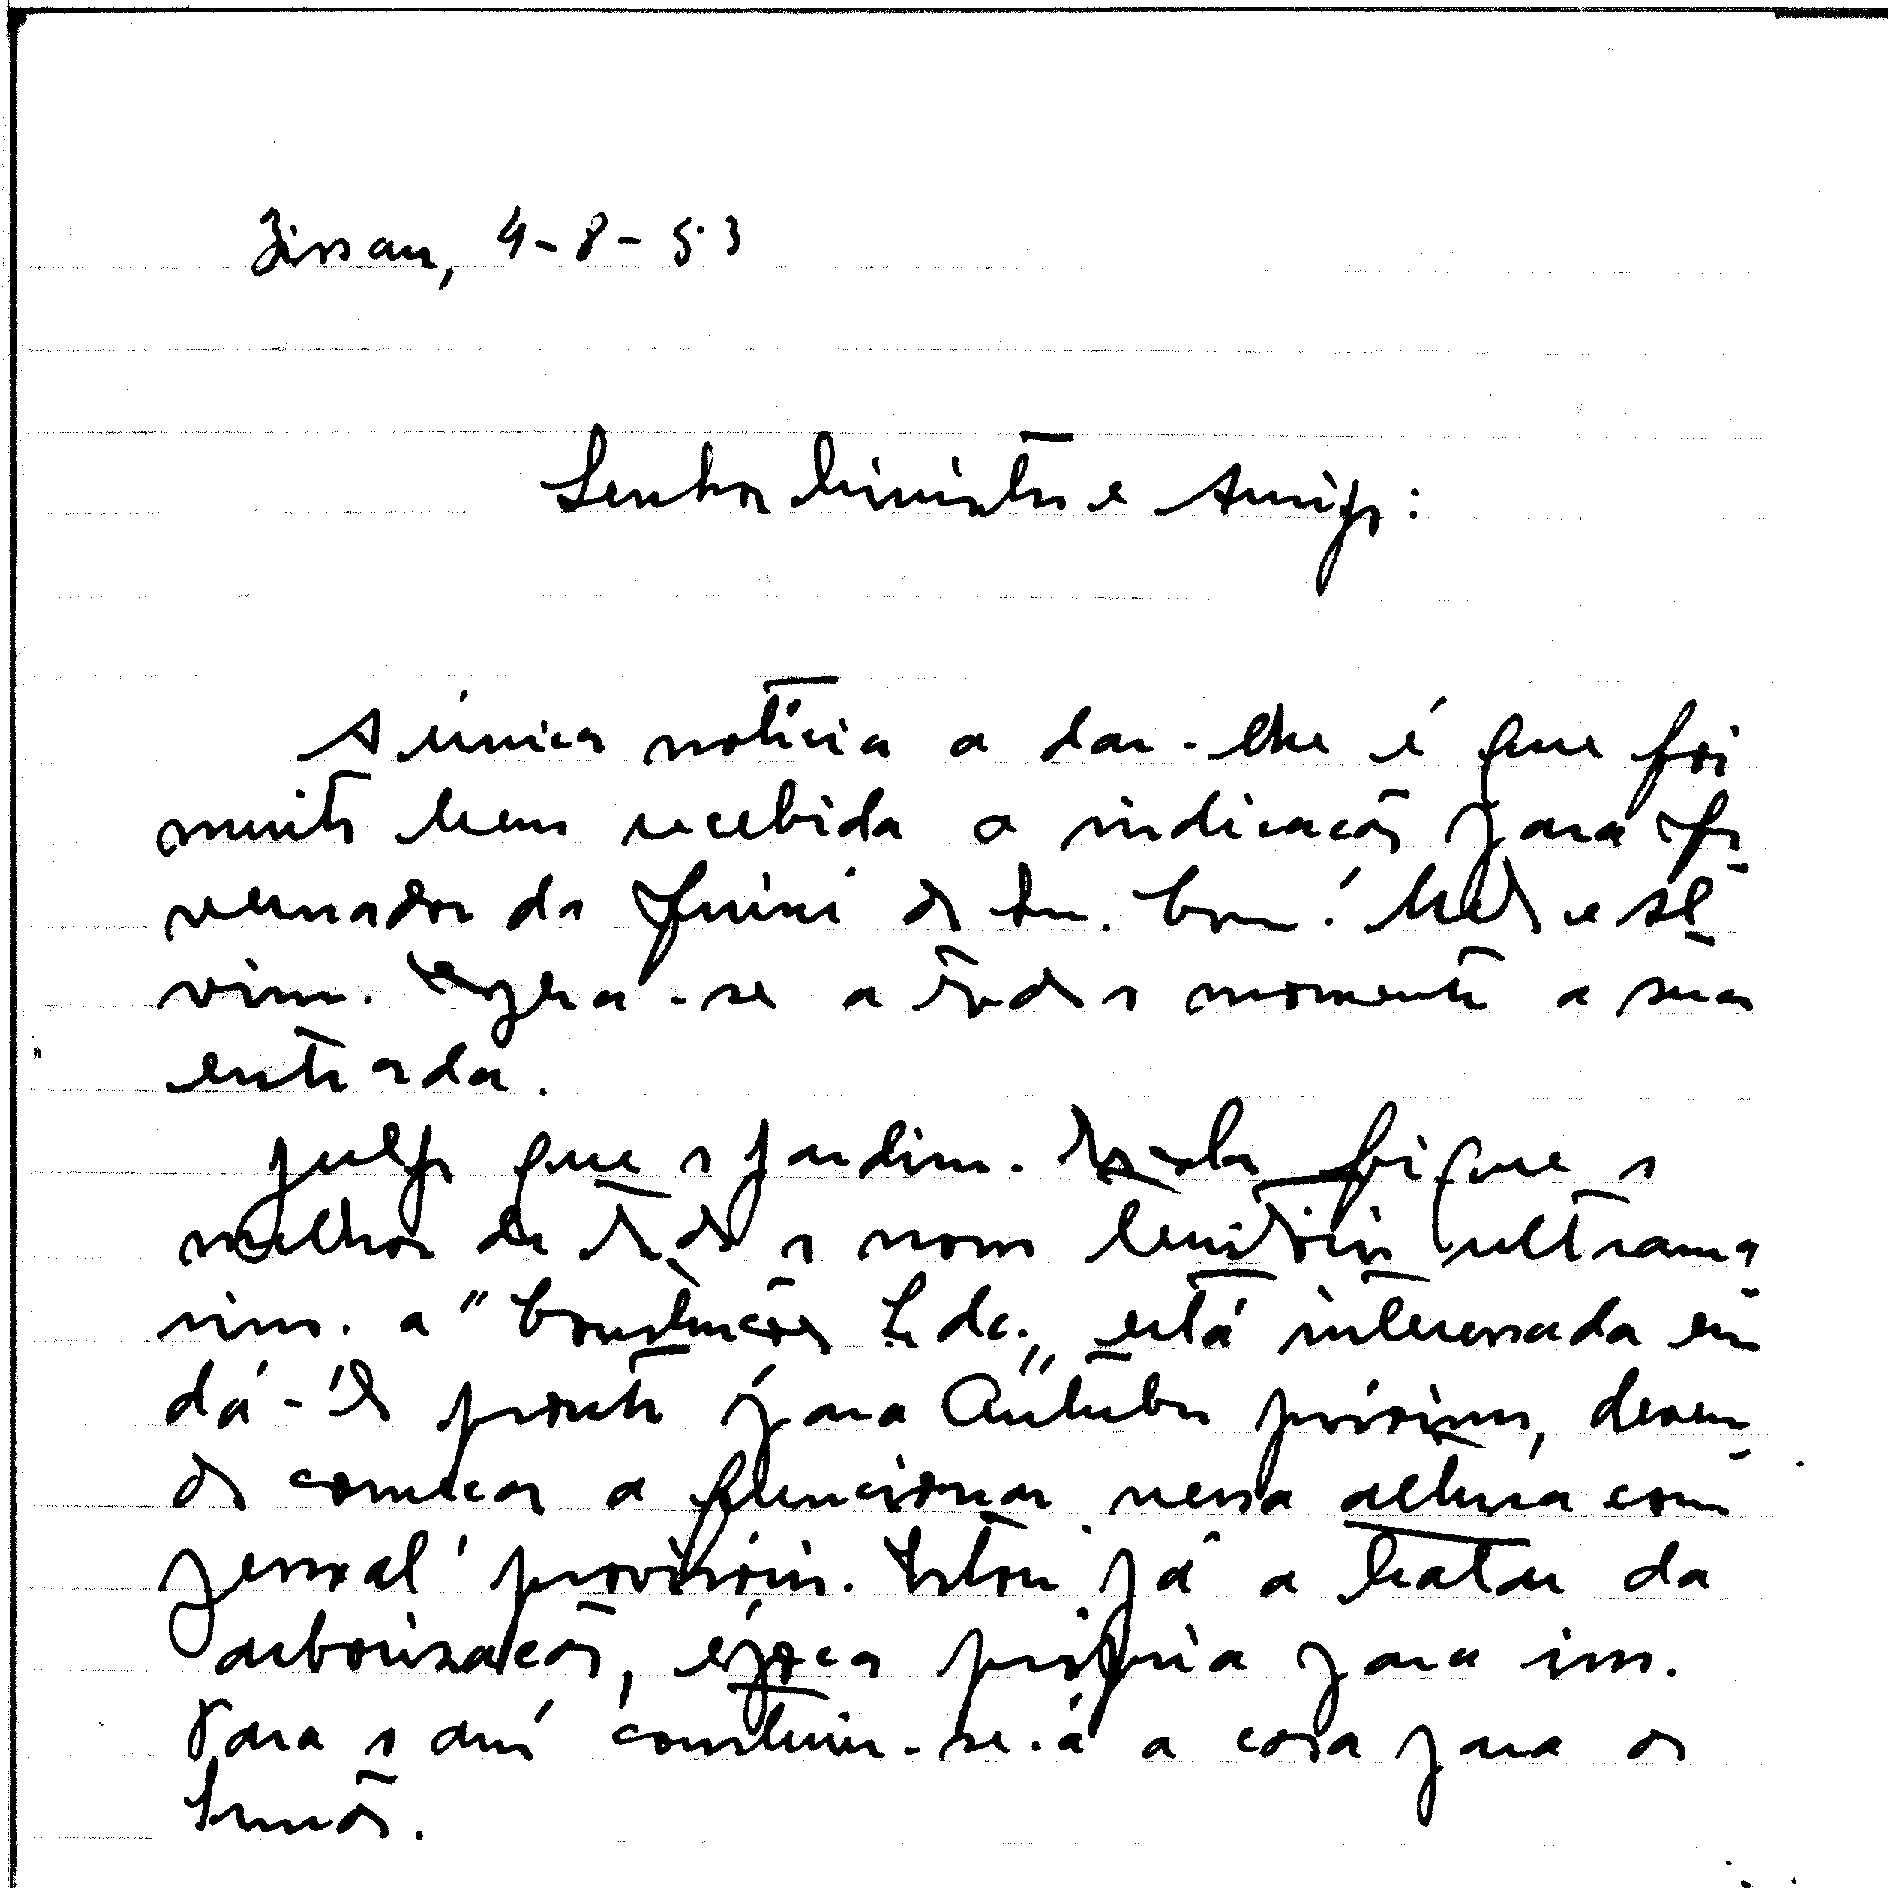 Bissau, 4-8-53
Senhor Ministro e Amigo:
A única notícia a dar-lhe é que foi
muito bem recebida a indicação para go-
vernador da Guiné do Sr. Com. Melo e Al-
vim. Espera-se a todo o momento a sua
entrada.
Julgo que o Jardim-Escola fique o
melhor de todo o nosso território ultrama-
rino. A "Construções Lda." está interessada em
dá-lo pronto para Outubro próximo, deven-
do começar a funcionar nessa altura com
pessoal provisório. Estou já a tratar da
arborização, época própria para isso.
Para o ano construir-se-á a casa para os
Irmãos.